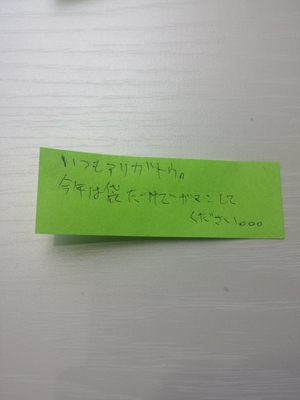 いつもアリガトウ〃
今年は袋だけでガマンして
ください。。。